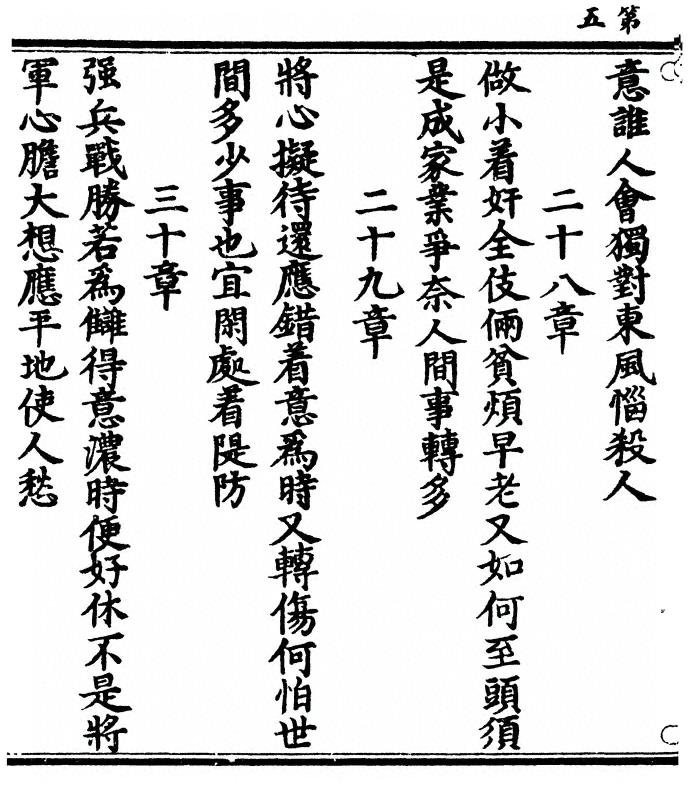 第五
意誰人會獨對東風惱殺人
二十八章
做小着奸全伎倆貧煩早老又如何至頭須
是成家業爭奈人間事轉多
二十九章
將心擬待還應錯着意爲時又轉傷何怕世
間多少事也宜閑處着隄防
三十章
强兵戰勝若爲讎得意濃時便好休不是將
軍心膽大想應平地使人愁